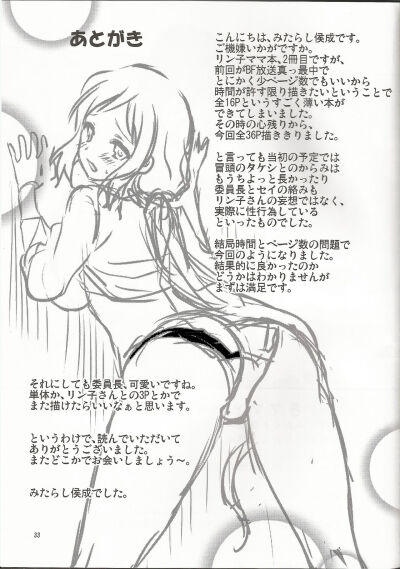 あとがき
こんにちは、みたらし侯成です。
ご機嫌いかがですか。
リン子ママ本、2冊目ですが、
前回がBF放送真っ最中で
とにかく少ページ数でもいいから
時間が許す限り描きたいということで
全16Pというすごく薄い本が
できてしまいました。
その時の心残りから、
今回全36P描ききりました。
と言っても当初の予定では
冒頭のタケシとのからみは
もうちょっと長かったり
委員長とセイの絡みも
リン子さんの妄想ではなく、
実際に性行為している
といったものでした。
結局時間とページ数の問題で
今回のようになりました。
結果的に良かったのか
どうかはわかりませんが
まずは満足です。
それにしても委員長、可愛いですね。
単体か、リン子さんとの3Pとかで
また描けたらいいなぁと思います。
というわけで、読んでいただいて
ありがとうございました。
またどこかでお会いしましょう〜。
みたらし侯成でした。
33